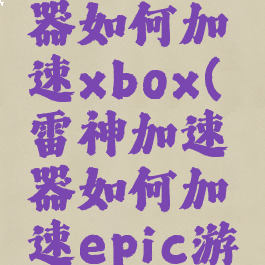 器如何加
速xbox(
雷神加速
器如何加
速epic游